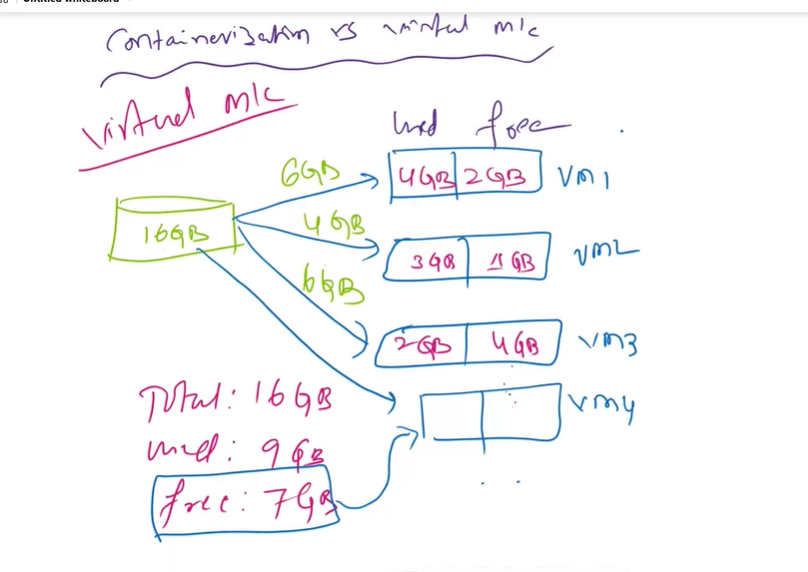 Untitled whiteboard
Containerization vs virtual m/c
virtual m/c
used free
16GB
6GB
4GB 2GB VM1
4GB
3GB 1GB VM2
6GB
2GB 4GB VM3
VM4
Total: 16GB
used: 9GB
free: 7GB